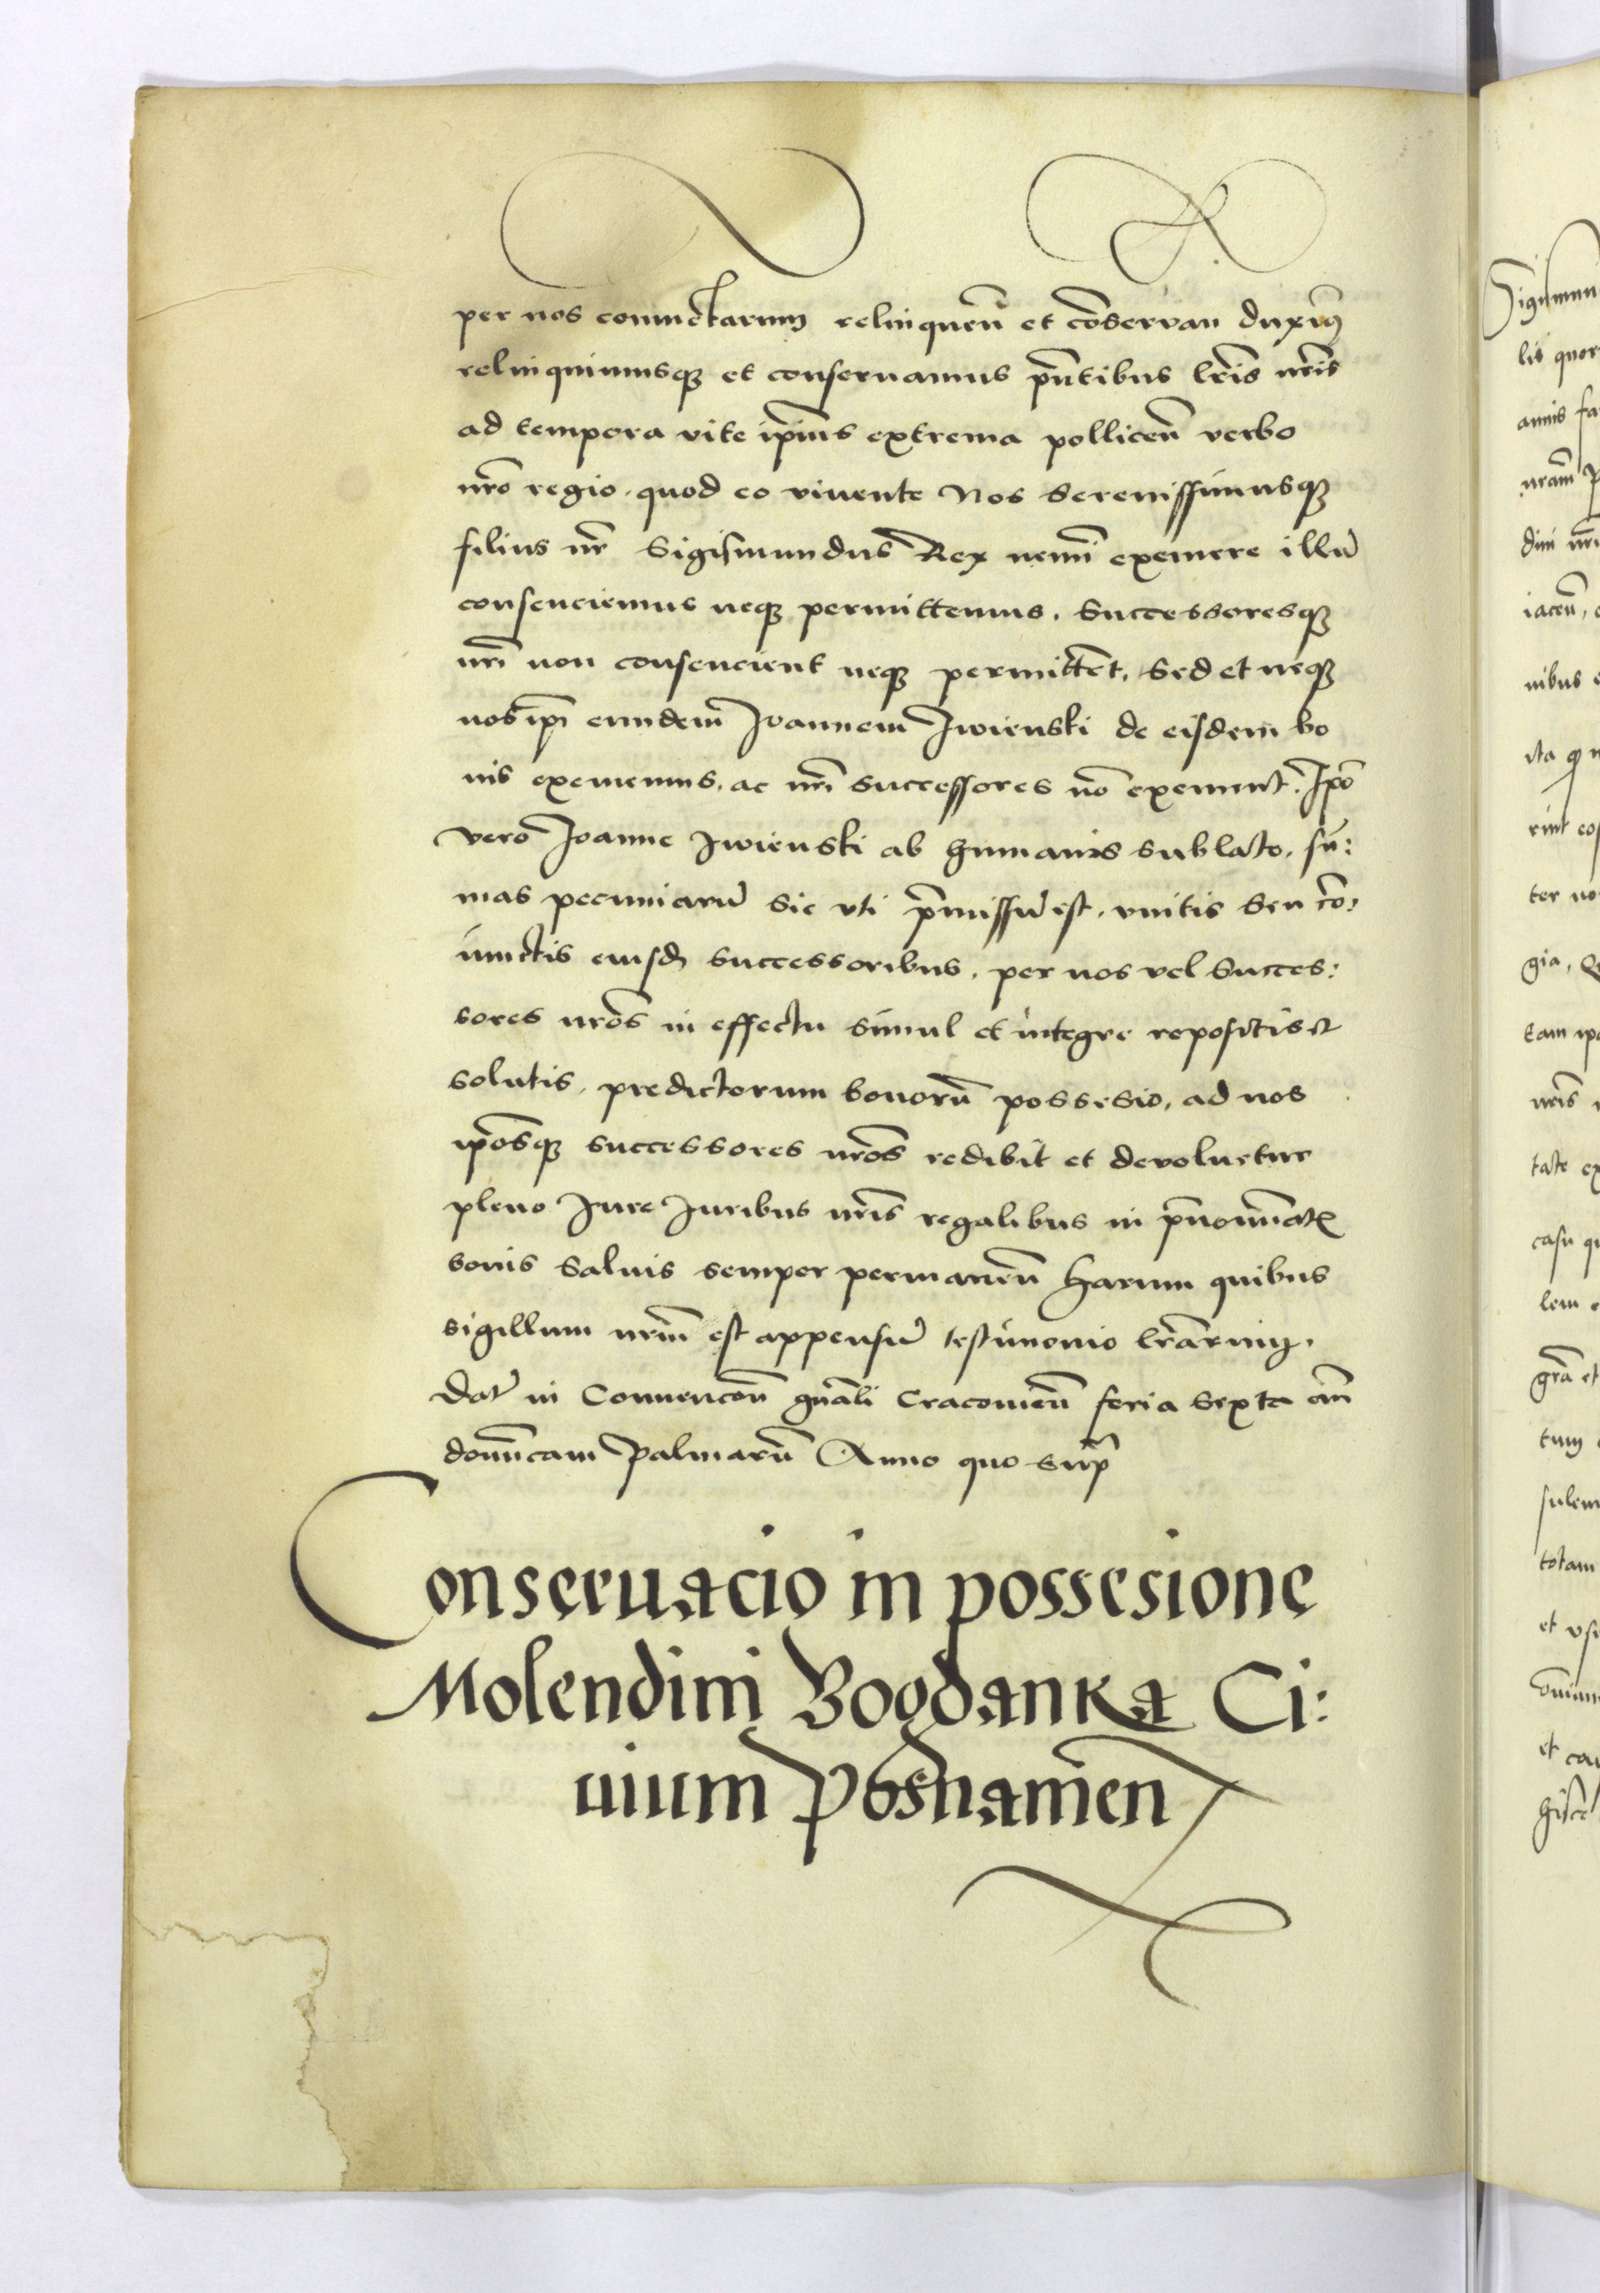 per nos coniunctarum relinquen̄ et cōservan duxim9
relinquimusqȝ et conseruamus pn̄tibus lr̄is nr̄is
ad tempora vite ip̄ius extrema pollicen̄ verbo
nr̄o regio. quod eo viuente Nos Serenissimusqȝ
filius nr̄ Sigismundus Rex nemi exemere illū
consenciemus neqȝ permittemus. Successoresqȝ
nr̄i non consencient neqȝ permittēt. Sed et neqȝ
nos ip̄i eundem Joannem Jwienski de eisdem bo
nis exememus. ac nr̄i successores nō exement. Ip̄o
vero Joanne Jwienski ab humanis sublato, sū:
mas pecuniarū sic vti p̄missū est. vnitis seu cō:
iunctis eiusd̄ successoribus. per nos vel succes:
sores nr̄os in effectu simul et integre repositis et
solutis. predictorum bonorū possesio. ad nos
ip̄osqȝ successores nr̄os redibit et devoluetur
pleno Jure Juribus nr̄is regalibus in pn̄ominatꝭ
bonis saluis semper permanen̄ harum quibus
sigillum nr̄m est appensū testimonio lr̄arum.
Dat̄ in Conuencōn gn̄ali Cracouien̄ feria sexta an̄
dominicam Palmarū Anno quo sup̄
Conseruacio in possesione
Molendini Bogdanka Ci:
uium Posnamēn
Sigismun
lis quor
annis fa
nram̄ p
dini nr̄i
iacen̄,
nibus
ita qȝ n
rint eos
ter no
gia,
tam ip̄
nr̄is
tate ex
casu qu
lem
gr̄a et
tum
sulem
totam
et vsu
et ca